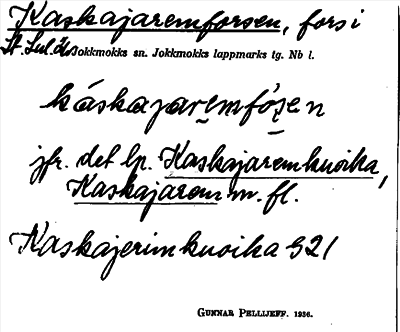 Kaskajaremforsen, fors i
St. Lul. älv Jokkmokks sn. Jokkmokks lappmarks tg. Nb l.
káskajaręmfo̜sen
jfr. det lp. Kaskajaremkuoika,
Kaskajarem m. fl.
Kaskajerimkuoika S21
GUNNAR PELLIJEFF. 1936.